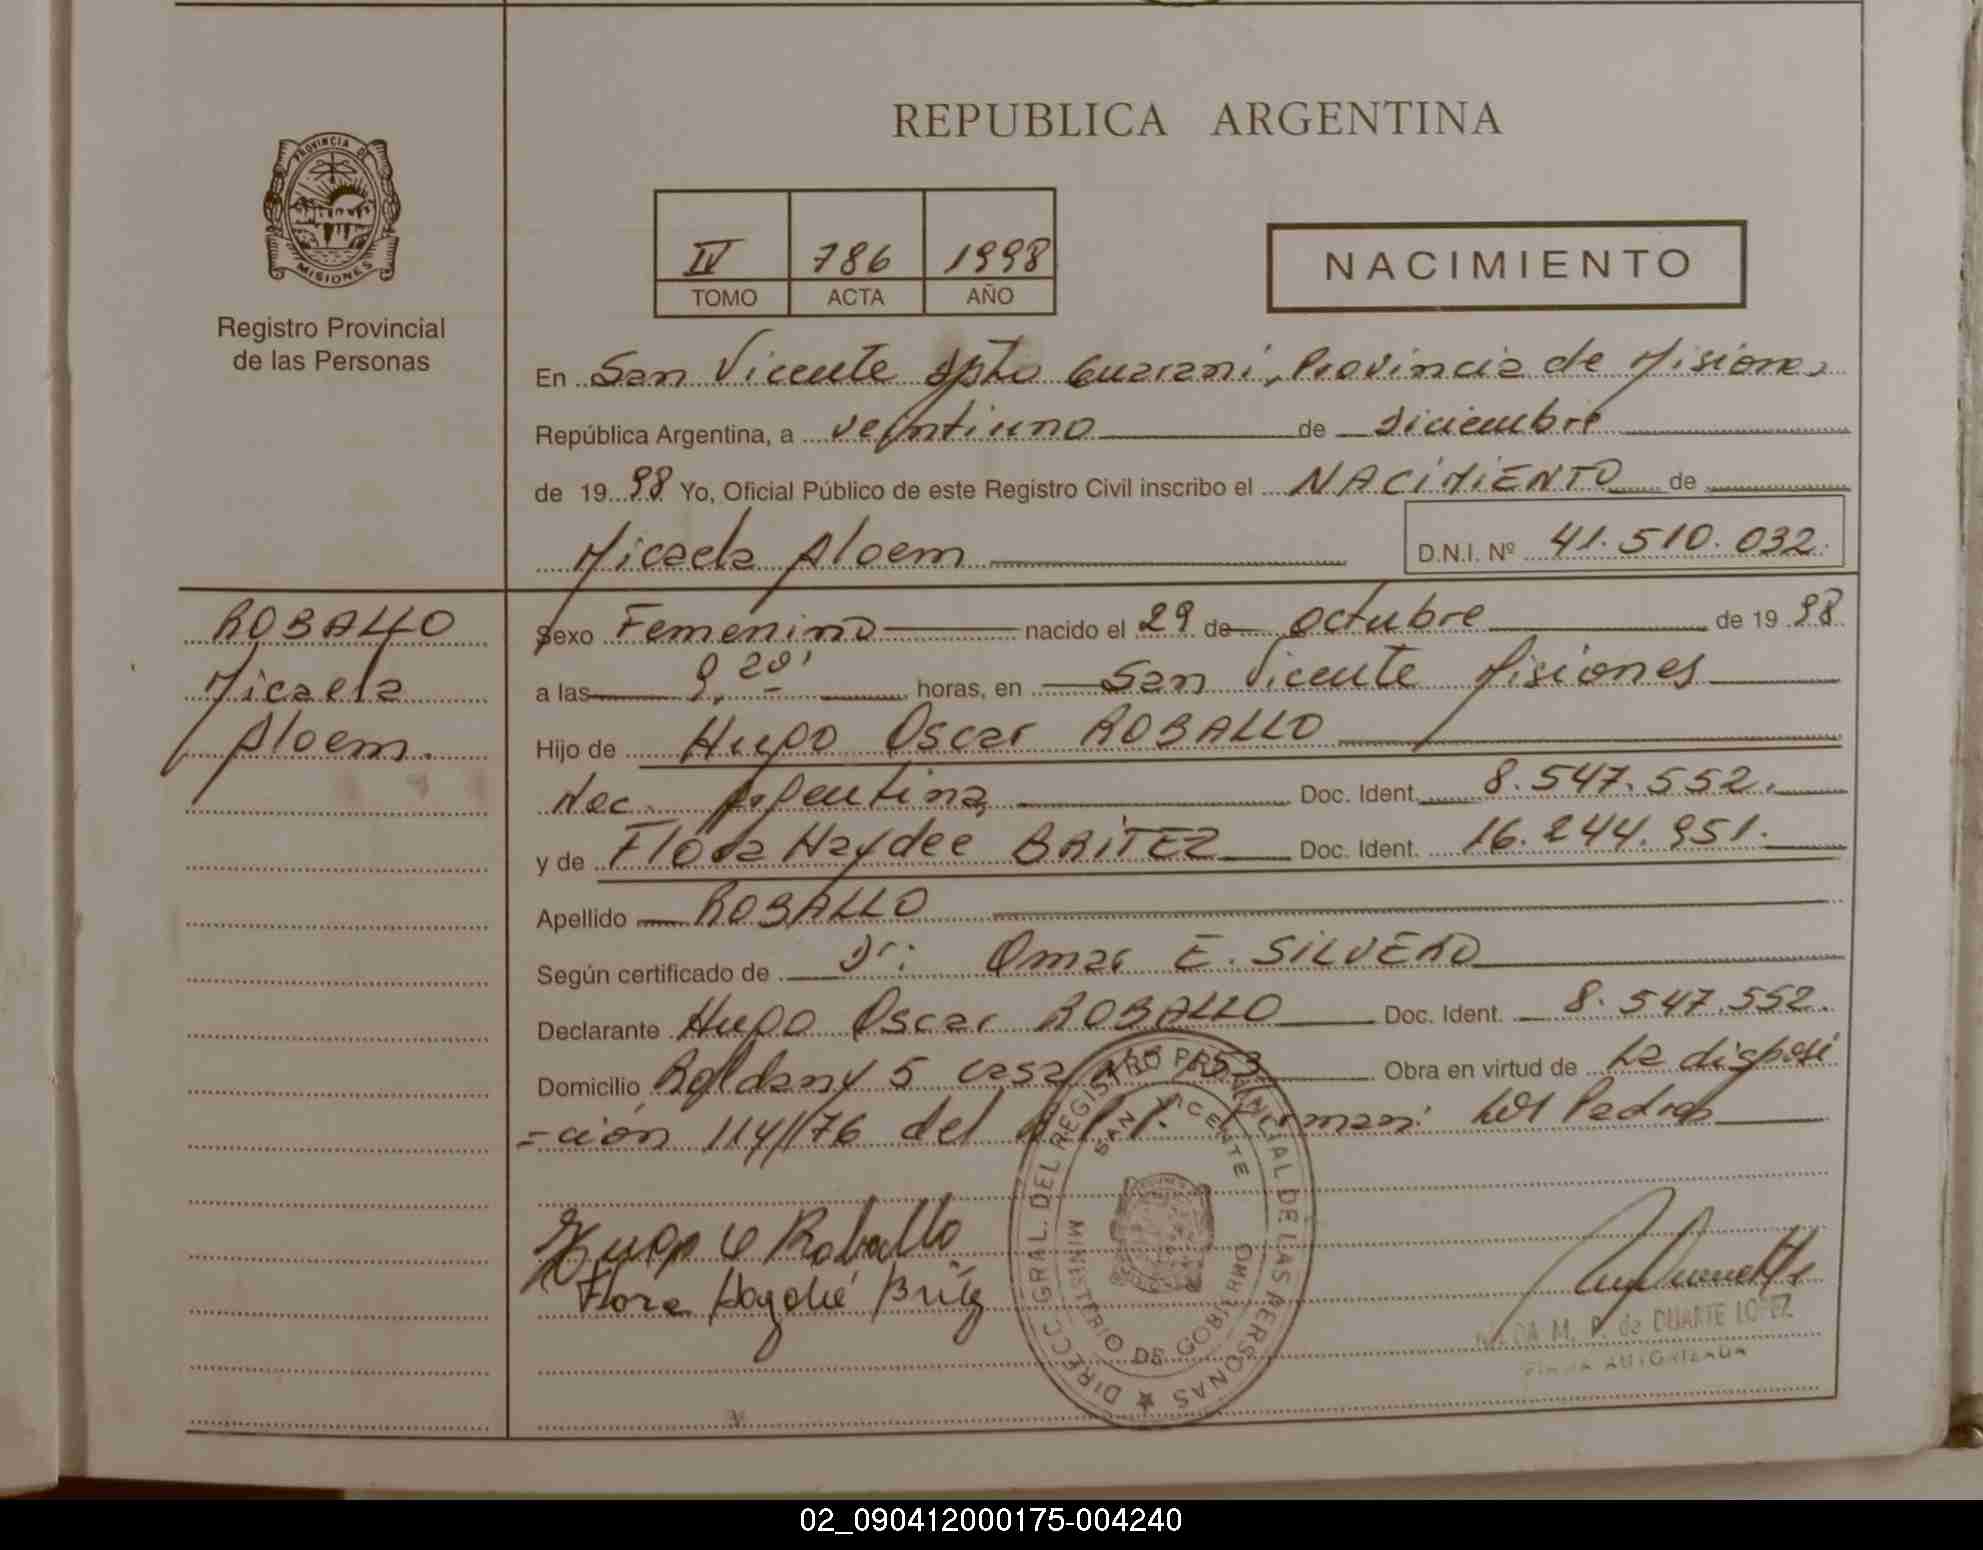 REPUBLICA ARGENTINA
PROVINCIA DE
MISIONES
Registro Provincial
de las Personas
IV 786 1998
TOMO ACTA AÑO
NACIMIENTO
En San Vicente Dpto Guarani, Provincia de Misiones
República Argentina, a veintiuno de diciembre
de 19 98 Yo, Oficial Público de este Registro Civil inscribo el NACIMIENTO de
Micaela Aloem
D.N.I. Nº 41.510.032.
ROBALLO
Micaela
Aloem.
Sexo Femenino nacido el 29 de octubre de 19 98
a las 9,20' horas, en San Vicente Misiones
Hijo de Hugo Oscar ROBALLO
Nac. Argentina Doc. Ident. 8.547.552.
y de Flora Haydee BRITEZ Doc. Ident. 16.244.951.
Apellido ROBALLO
Según certificado de Dr: Omar E. SILVERO
Declarante Hugo Oscar ROBALLO Doc. Ident. 8.547.552.
Domicilio Roldan y 5 casa 53 Obra en virtud de La disposi
=ción 114/76 del R.P.P. Firman: Los Padres
Hugo O Roballo
Flora Haydeé Britez
DIRECC. GRAL. DEL REGISTRO PROVINCIAL DE LAS PERSONAS
SAN VICENTE
MINISTERIO DE GOBIERNO
M. P. de DUARTE LOPEZ
FIRMA AUTORIZADA
02_090412000175-004240